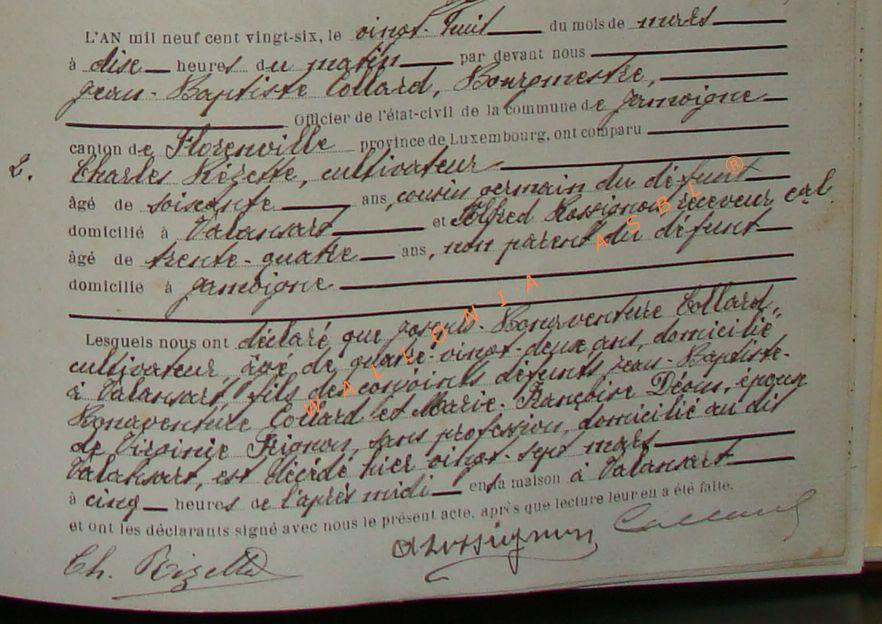 L'AN mil neuf cent vingt-six, le vingt-huit du mois de mars
à dix heures du matin par devant nous
Jean-Baptiste Collard, Bourgmestre,
Officier de l'état-civil de la commune de Jamoigne
canton de Florenville province de Luxembourg, ont comparu
2. Charles Rézette, cultivateur
âgé de soixante ans, cousin germain du défunt
domicilié à Valansart et Alfred Rossignon receveur
âgé de trente-quatre ans, non parent du défunt
domicilié à Jamoigne
Lesquels nous ont déclaré que Joseph-Bonaventure Collard,
cultivateur âgé de quatre-vingt-deux ans, domicilié
à Valansart, fils des conjoints défunts Jean-Baptiste-
Bonaventure Collard et Marie-Françoise, époux
de Virginie, sans profession, domicilié au dit
Valansart, est décédé hier vingt-sept mars
à cinq heures de l'après midi en sa maison à Valansart
et ont les déclarants signé avec nous le présent acte, après que lecture leur en a été faite.
Ch. Rézette Rossignon Collard
WALLONIA ASBL ®